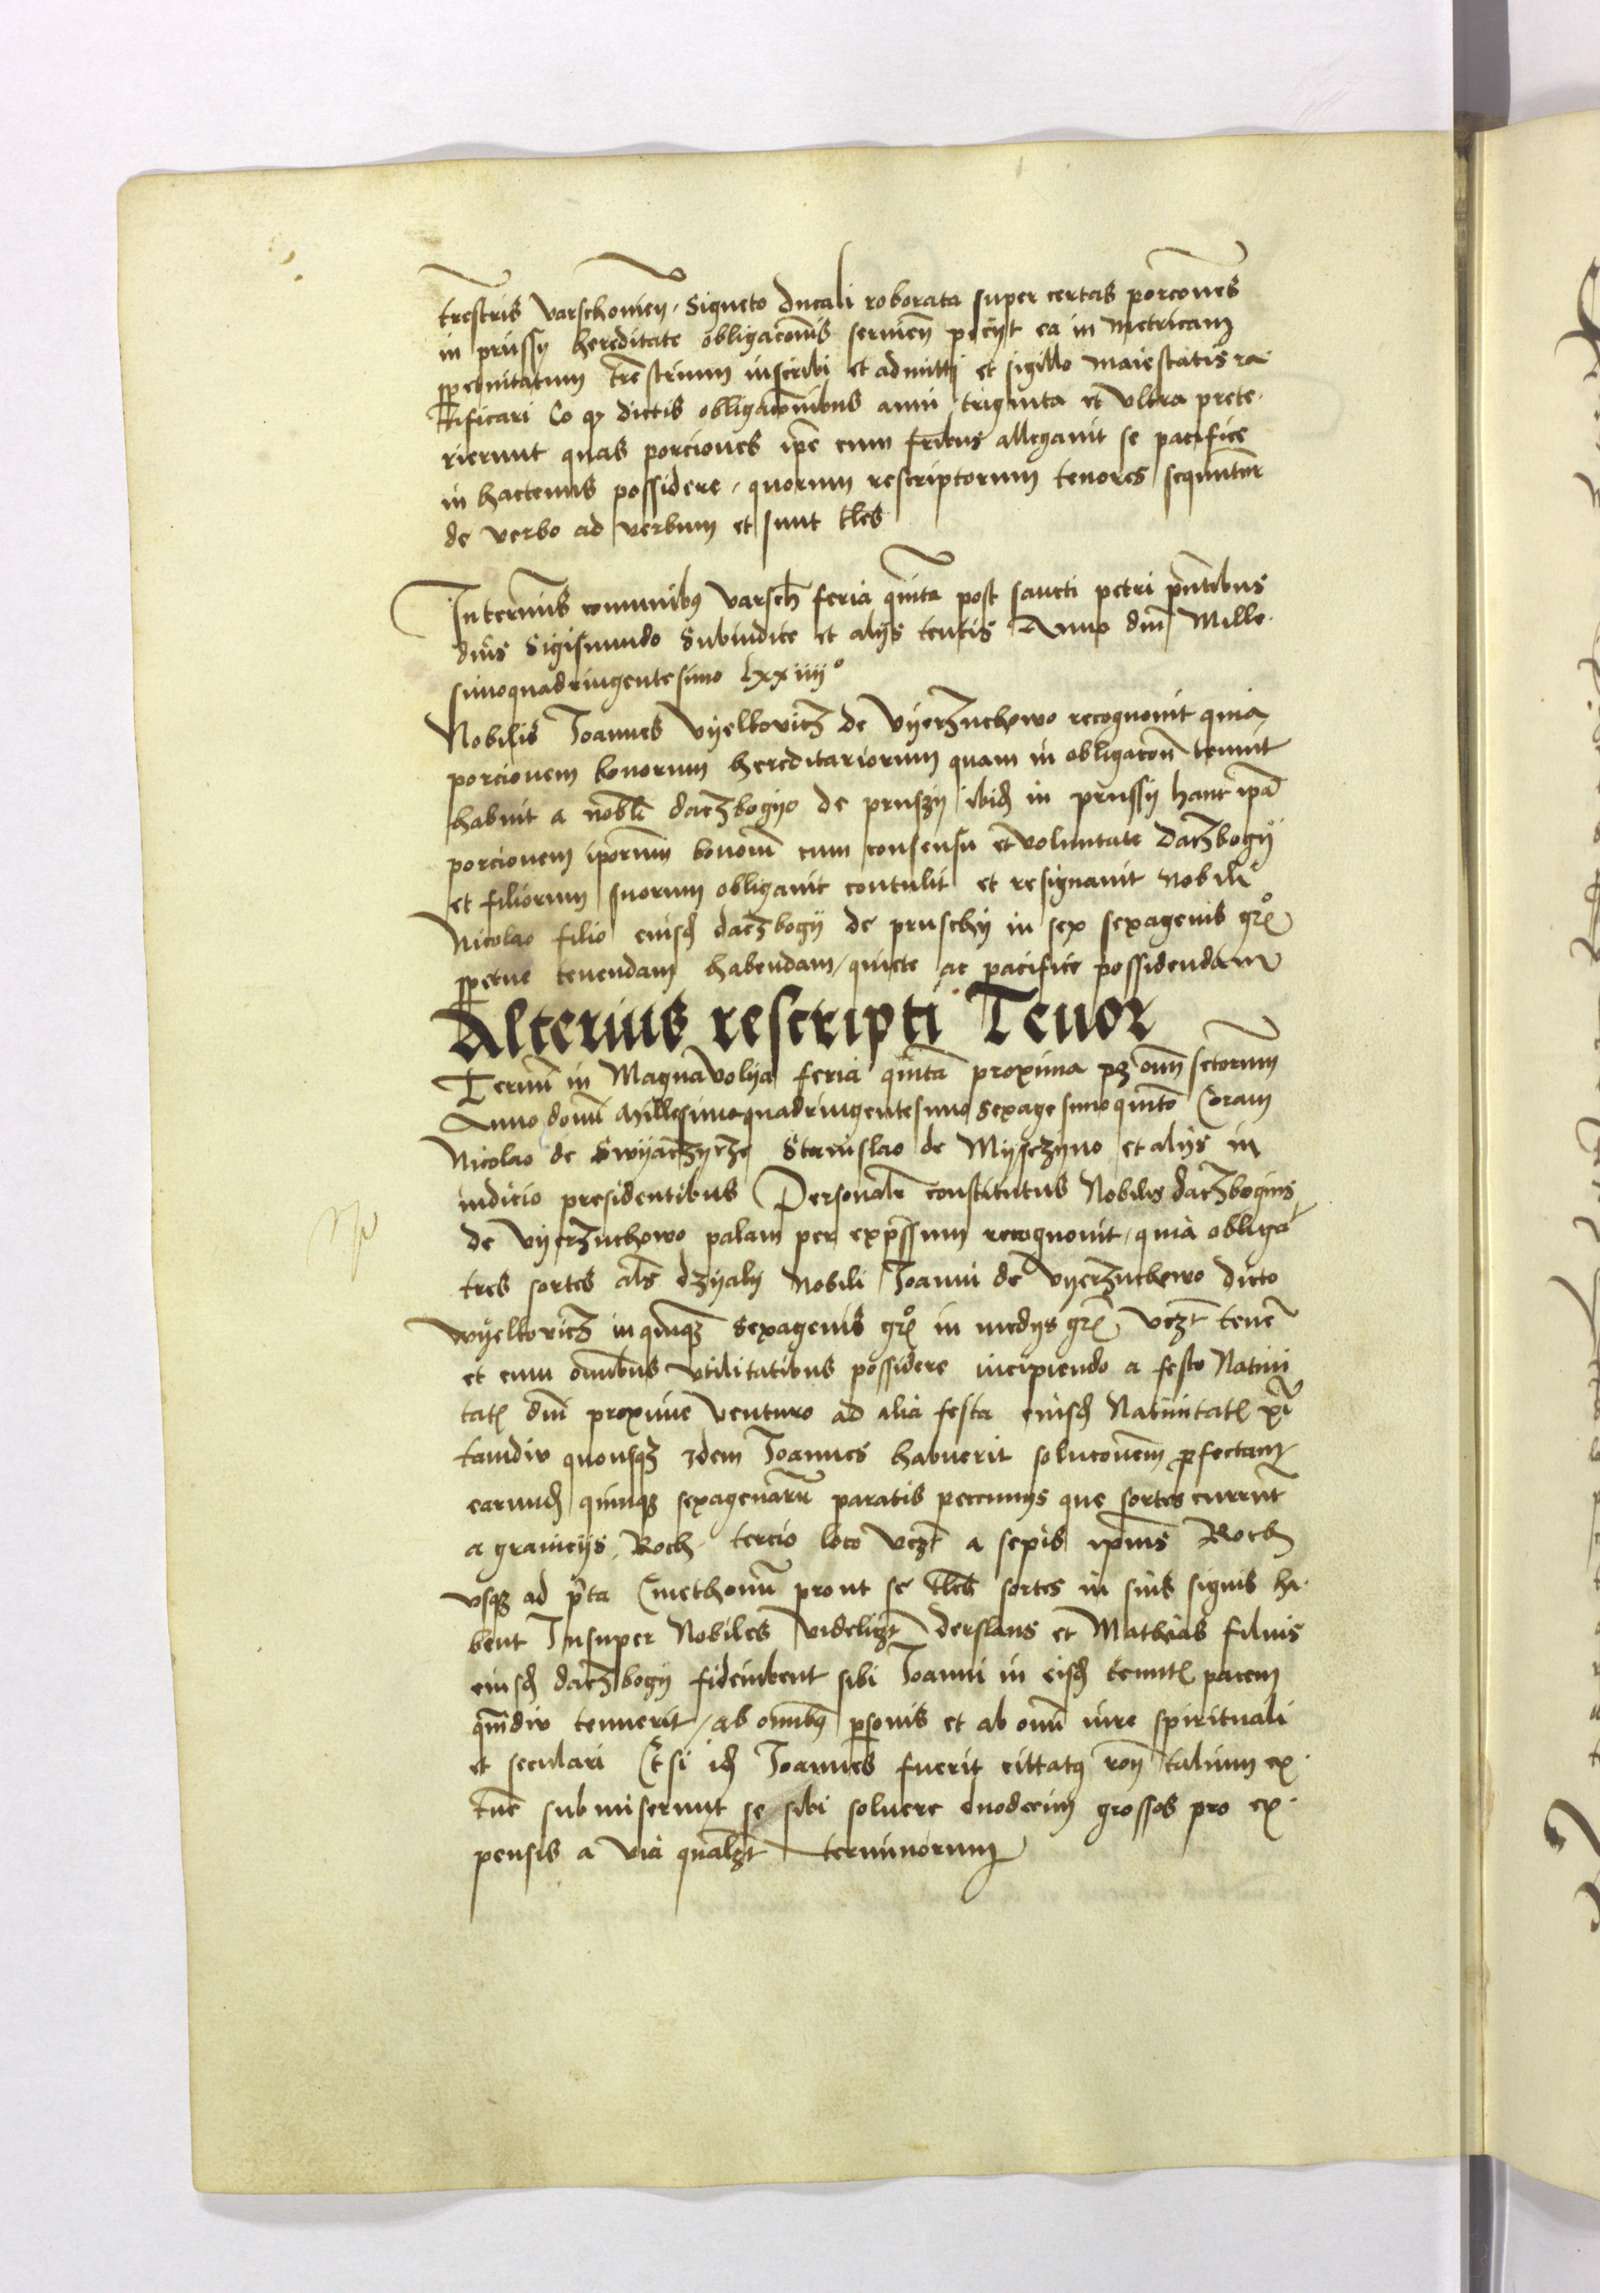 trestris varschonien. Signeto ducali roborata super certas porcones
in prussy hereditate obligaconis servien petyt ea in metricam
perpetuitatum trestrium inscribi et admitti et sigillo maiestatis ra-
tificari Eo quod dictis obligaconibus anni triginta et ultra prete-
rierunt quas porciones ipe cum fribus allegavit se pacifice
in hactenus possidere, quorum rescriptorum tenores sequuntur
de verbo ad verbum et sunt tles
In terminis comunibus varsch feria quinta post sancti petri pntibus
dnis Sigismundo Subiudice et alys tentis Anno dni Mille-
simoquadringentesimo lxxiiii°
Nobilis Joannes Vyelkovicz de Vyerzuchowo recognovit quia
porcionem bonorum hereditariorum quam in obligacon tenuit
habuit a nobli daczbogyo de pruszy ibid in prussy hanc ipa
porcionem iporum bonorum cum consensu et voluntate daczbogy
et filiorum suorum obligavit contulit et resignavit Nobili
Nicolao filio eiusd daczbogy de pruschy in sex sexagenis gro
perpetue tenendam habendam, quiete ac pacifice possidendam
Alterius rescripti Tenor
Termin in Magnavolya feria quinta proxima pz omn sctorum
Anno domi Millesimoquadringentesimo Sexagesimoquinto Coram
Nicolao de Swyaczyrze Stanislao de Myszyno et alys in
iudicio presidentibus Personalr constitutus Nobilis daczbogius
de Vyerzuchowo palam per expssum recognovit, quia obliga
tres sortes als dzyaly Nobili Joanni de Vyerzuchowo dicto
Wyelkovicz in quinqz Sexagenis gro in medys gr, vczt tene
et cum omnibus utilitatibus possidere incipiendo a festo Nativi
tat dni proxime venturo ad alia festa eiusd Nativitat xi
tamdiu quousqz idem Joannes habuerit solucionem perfectam
earund quinqz sexagenaru paratis pecunys que sortes currut
a granicys Roch tercio loco vczt a sepis ipius Roch
usqz ad pta Cmethonu prout se tles sortes in suis signis ha-
bent Insuper Nobiles videlizt derslaus et Mathias filius
eiusd daczbogy fideiubent sibi Joanni in eisd tenut pacem
qmdiu tenuerit, ab omibus psonis et ab omi iure spirituali
et seculari Et si id Joannes fuerit cittatus ron talium ex-
tunc submiserunt se sibi solvere duodecim grossos pro ex-
pensis a via qualzt terminorum